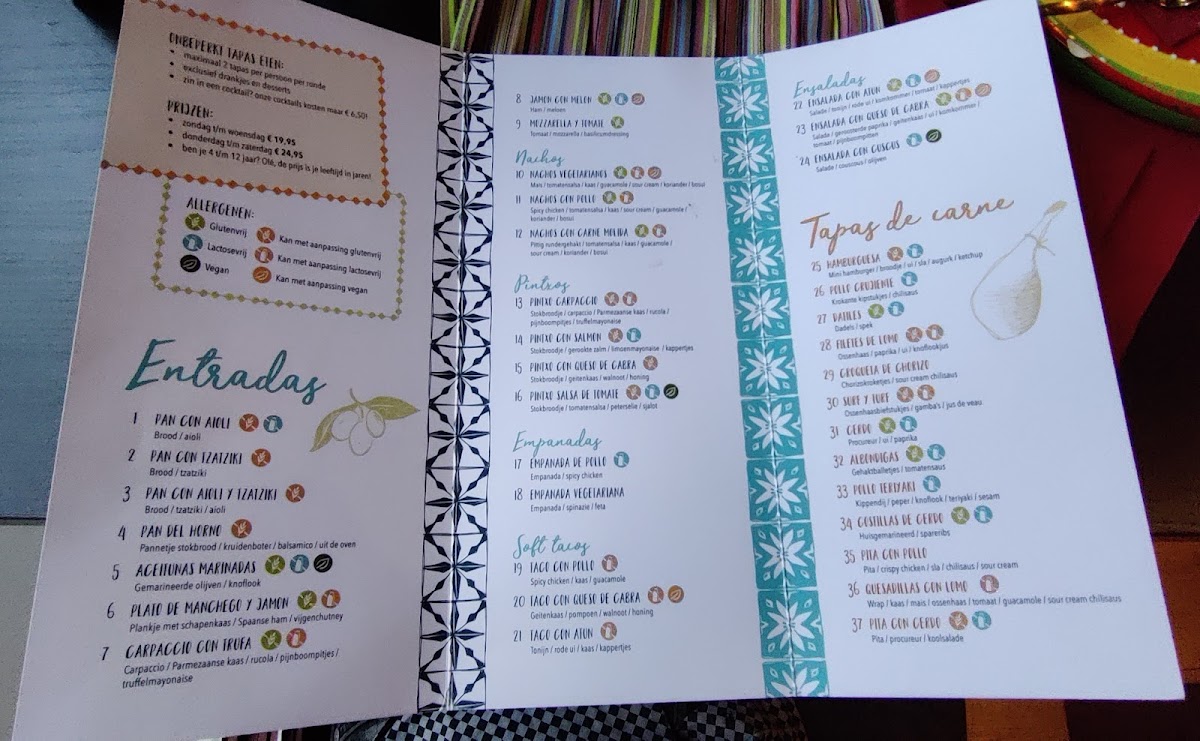 ONBEPERKT TAPAS ETEN:
• maximaal 2 tapas per persoon per ronde
• exclusief drankjes en desserts
• zin in een cocktail? onze cocktails kosten maar € 6,50!
PRIJZEN:
• zondag t/m woensdag € 19,95
• donderdag t/m zaterdag € 24,95
• ben je 4 t/m 12 jaar? Olé, de prijs is je leeftijd in jaren!
ALLERGENEN:
Glutenvrij
Kan met aanpassing glutenvrij
Lactosevrij
Kan met aanpassing lactosevrij
Vegan
Kan met aanpassing vegan
Entradas
1 PAN CON AIOLI
Brood / aioli
2 PAN CON TZATZIKI
Brood / tzatziki
3 PAN CON AIOLI Y TZATZIKI
Brood / tzatziki / aioli
4 PAN DEL HORNO
Pannetje stokbrood / kruidenboter / balsamico / uit de oven
5 ACEITUNAS MARINADAS
Gemarineerde olijven / knoflook
6 PLATO DE MANCHEGO Y JAMON
Plankje met schapenkaas / Spaanse ham / vijgenchutney
7 CARPACCIO CON TRUFA
Carpaccio / Parmezaanse kaas / rucola / pijnboompitjes /
truffelmayonaise
8 JAMON CON MELON
Ham / meloen
9 MEZZARELLA Y TOMATE
Tomaat / mozzarella / basilicumdressing
Nachos
10 NACHOS VEGETARIANOS
Mais / tomatensalsa / kaas / guacamole / sour cream / koriander / bosui
11 NACHOS CON POLLO
Spicy chicken / tomatensalsa / kaas / sour cream / guacamole /
koriander / bosui
12 NACHOS CON CARNE MOLIDA
Pittig rundergehakt / tomatensalsa / kaas / guacamole /
sour cream / koriander / bosui
Pintxos
13 PINTXO CARPACCIO
Stokbroodje / carpaccio / Parmezaanse kaas / rucola /
pijnboompitjes / truffelmayonaise
14 PINTXO CON SALMON
Stokbroodje / gerookte zalm / limoenmayonaise / kappertjes
15 PINTXO CON QUESO DE CABRA
Stokbroodje / geitenkaas / walnoot / honing
16 PINTXO SALSA DE TOMATE
Stokbroodje / tomatensalsa / peterselie / sjalot
Empanadas
17 EMPANADA DE POLLO
Empanada / spicy chicken
18 EMPANADA VEGETARIANA
Empanada / spinazie / feta
Soft tacos
19 TACO CON POLLO
Spicy chicken / kaas / guacamole
20 TACO CON QUESO DE CABRA
Geitenkaas / pompoen / walnoot / honing
21 TACO CON ATUN
Tonijn / rode ui / kaas / kappertjes
Ensaladas
22 ENSALADA CON ATUN
Salade / tonijn / rode ui / komkommer / tomaat / kappertjes
23 ENSALADA CON QUESO DE CABRA
Salade / geroosterde paprika / geitenkaas / ui / komkommer /
tomaat / pijnboompitten
24 ENSALADA CON COUSCUS
Salade / couscous / olijven
Tapas de carne
25 HAMBURGUESA
Mini hamburger / broodje / ui / sla / augurk / ketchup
26 POLLO CRUJIENTE
Krokante kipstukjes / chilisaus
27 DATILES
Dadels / spek
28 FILETES DE LOMO
Ossenhaas / paprika / ui / knoflookjus
29 CROQUETA DE CHORIZO
Chorizokroketjes / sour cream chilisaus
30 SURF Y TURF
Ossenhaasbiefstukjes / gamba's / jus de veau
31 CERDO
Procureur / ui / paprika
32 ALBONDIGAS
Gehaktballetjes / tomatensaus
33 POLLO TERIYAKI
Kippendij / peper / knoflook / teriyaki / sesam
34 COSTILLAS DE CERDO
Huisgemarineerd / spareribs
35 PITA CON POLLO
Pita / crispy chicken / sla / chilisaus / sour cream
36 QUESADILLAS CON LOMO
Wrap / kaas / mais / ossenhaas / tomaat / guacamole / sour cream chilisaus
37 PITA CON CERDO
Pita / procureur / koolsalade